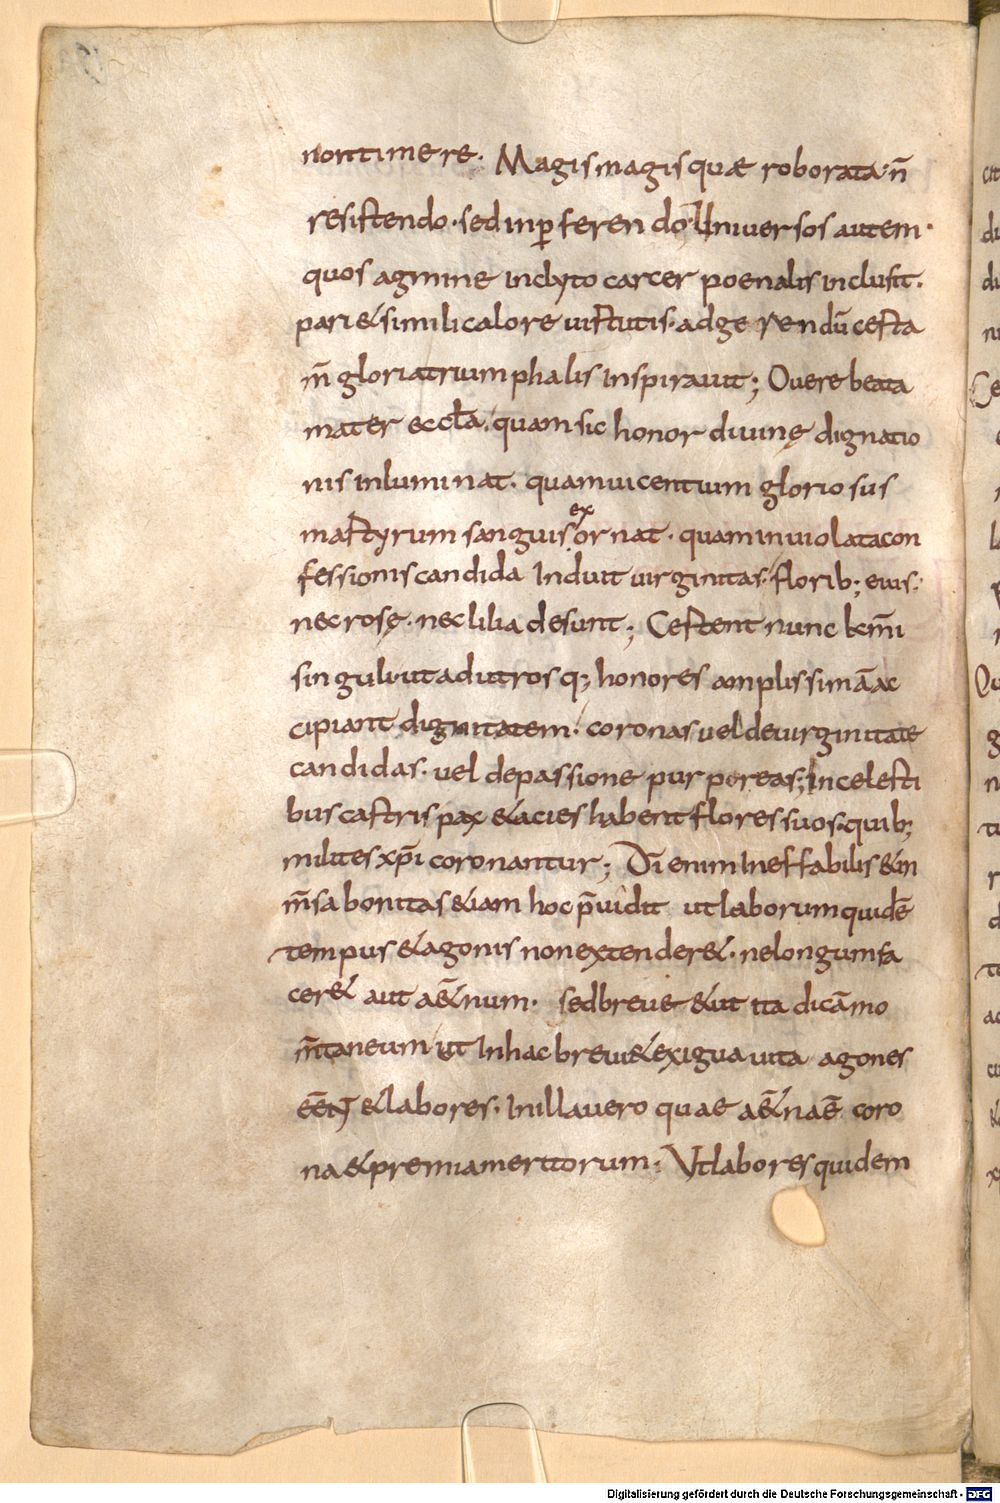 non timere. Magis magisquae roborata n̄
resistendo. sed inꝑferendo. Universos autem.
quos agmine inclyto carcer poenalis inclusit.
pari & simili calore uirtutis. ad gerendū certa
m̄ gloria triumphalis inspirauit; O uere beata
mater eccła. quam sic honor diuinę dignatio
nis inluminat. quam uicentium gloriosus
martyrum sanguis exornat. quam inuiolata con
fessionis candida induit uirginitas. florib; eius.
nec rosę. nec lilia desunt; Certent nunc kr̄mi
singuli. ut ad utrosq; honores amplissimā ac
cipiant dignitatem. coronas uel de uirginitate
candidas. uel de passione purpureas; In celesti
bus castris pax & acies habent flores suos. quib;
milites xp̄i coronantur; Dī enim ineffabilis & in
m̄sa bonitas &iam hoc p̄uidit ut laborum quidē
tempus & agonis non extender&. ne longum fa
cer& aut a&̄num. sed breue & ut ita dicā mo
m̄taneum ut in hac breui & exigua uita agones
eēnt & labores. in illa uero quae a&̄na ē coro
na & premia meritorum. Ut labores quidem
Digitalisierung gefördert durch die Deutsche Forschungsgemeinschaft - DFG